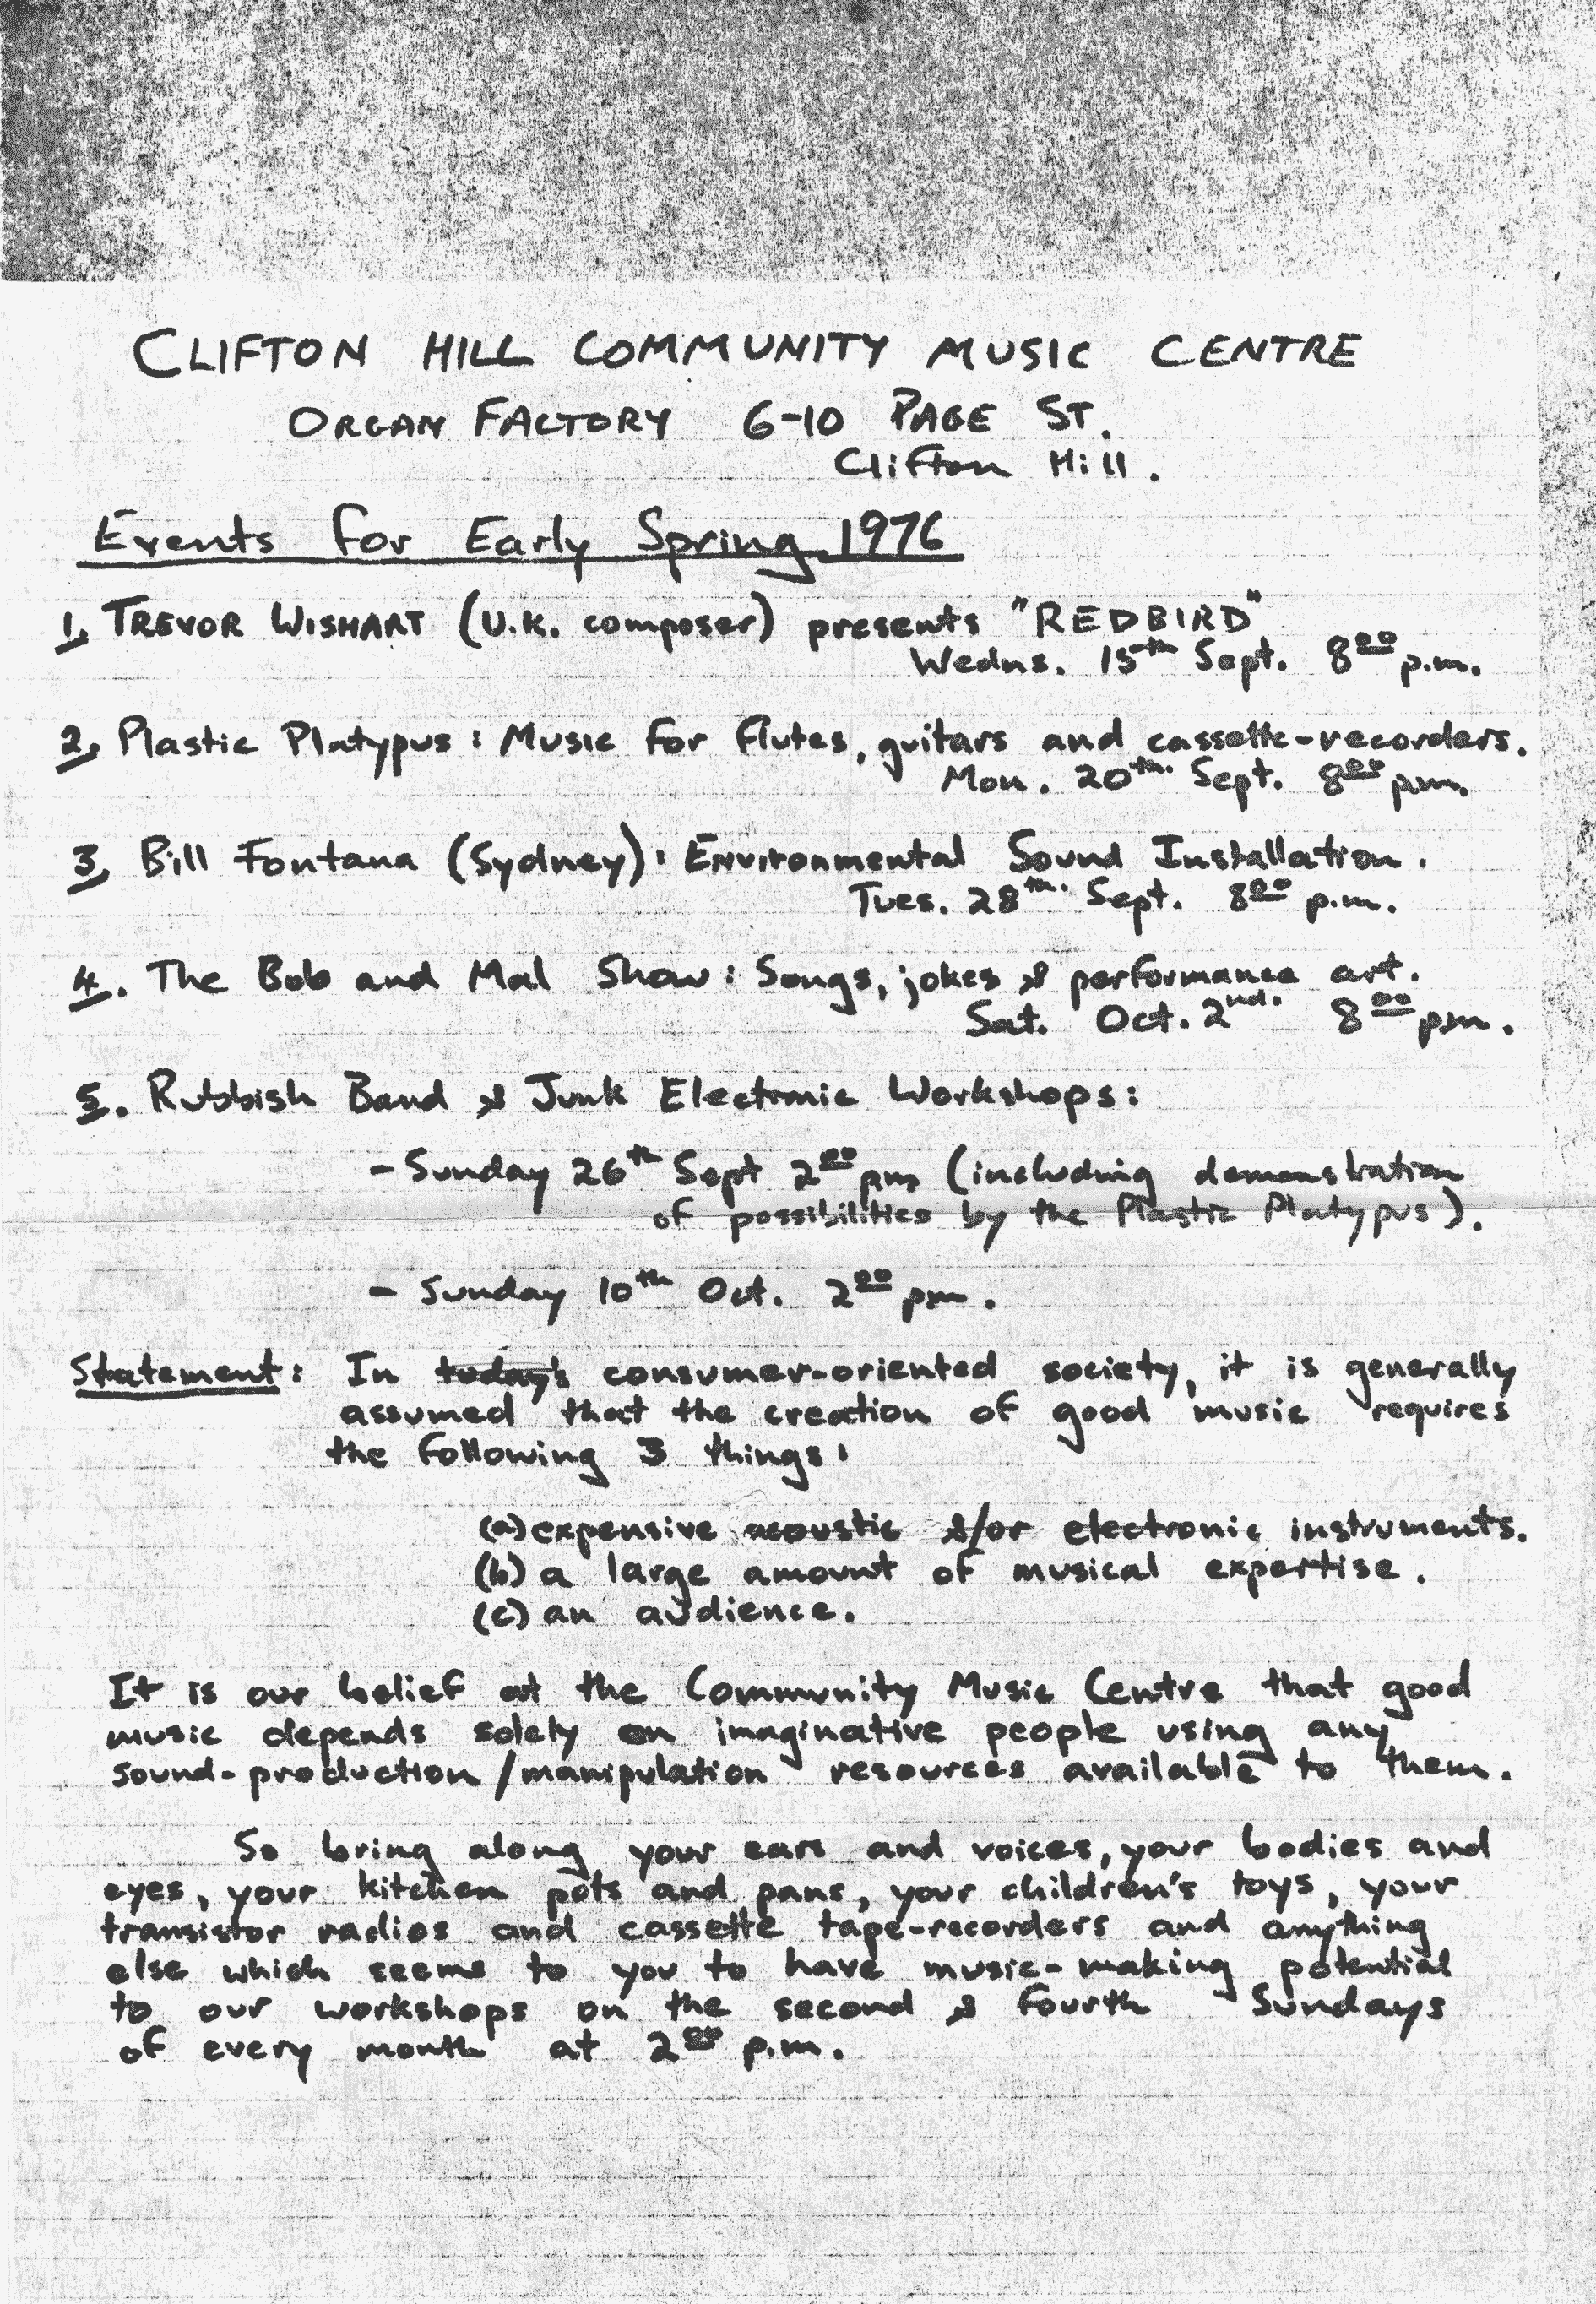 CLIFTON HILL COMMUNITY MUSIC CENTRE
ORGAN FACTORY 6-10 PAGE ST.
Clifton Hill.
Events for Early Spring 1976
1. TREVOR WISHART (U.K. composer) presents "REDBIRD"
Wedns. 15th Sept. 800 p.m.
2. Plastic Platypus: Music for flutes, guitars and cassette-recorders.
Mon. 20th. Sept. 800 p.m.
3. Bill Fontana (Sydney): Environmental Sound Installation.
Tues. 28th. Sept. 800 p.m.
4. The Bob and Mal Show: Songs, jokes & performance art.
Sat. Oct. 2nd. 800 pm.
5. Rubbish Band & Junk Electronic Workshops:
- Sunday 26th Sept 200 pm (including demonstration
of possibilities by the Plastic Platypus).
- Sunday 10th Oct. 200 pm.
Statement: In today's consumer-oriented society, it is generally
assumed that the creation of good music requires
the following 3 things:
(a) expensive acoustic &/or electronic instruments.
(b) a large amount of musical expertise.
(c) an audience.
It is our belief at the Community Music Centre that good
music depends solely on imaginative people using any
sound-production/manipulation resources available to them.
So bring along your ears and voices, your bodies and
eyes, your kitchen pots and pans, your children's toys, your
transistor radios and cassette tape-recorders and anything
else which seems to you to have music-making potential
to our workshops on the second & fourth Sundays
of every month at 200 p.m.